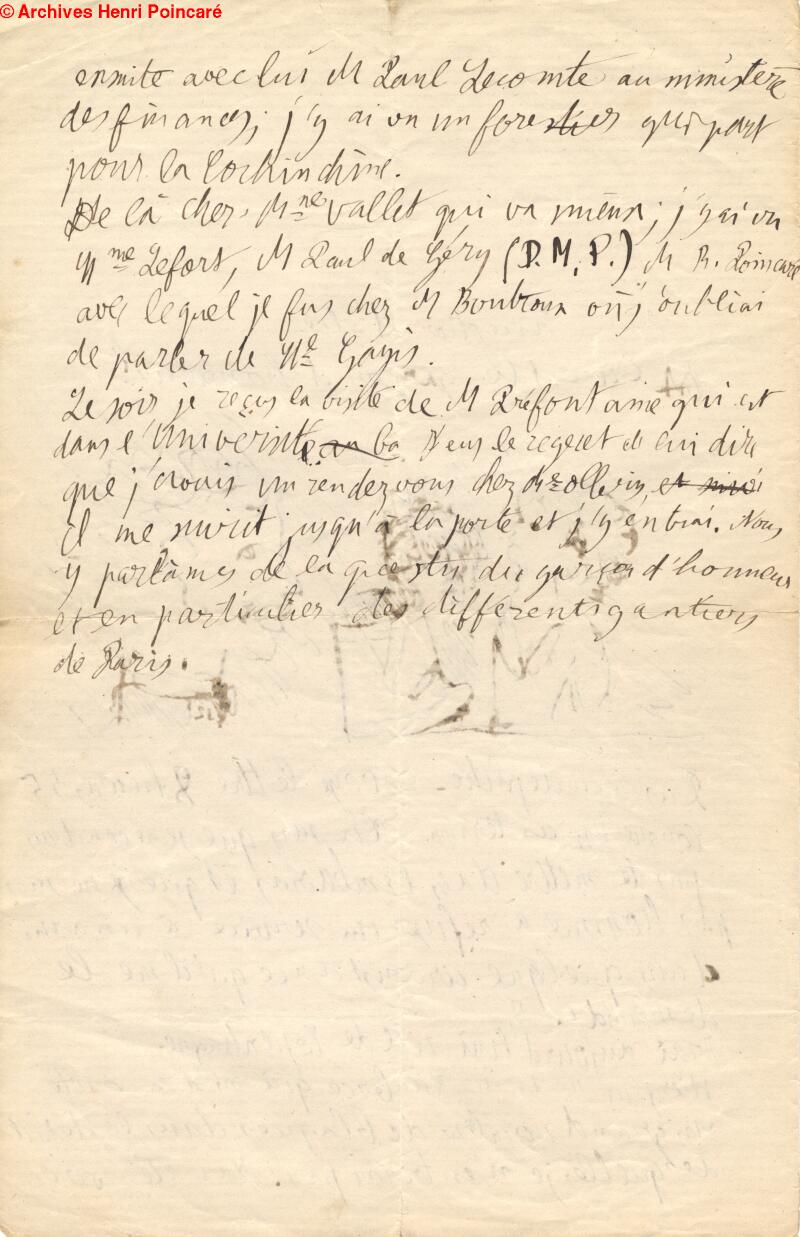 © Archives Henri Poincaré
ensuite avec lui M Paul Lecomte au ministère
des finances; j'y ai vu un forestier qui part
pour la Cochinchine.
De là chez Mme Vallet qui va mieux; j'y ai vu
Mme Lefort, M Paul de Géry (D.M.P.) M R. Poincaré
avec lequel je fus chez M Boutroux où j'oubliai
de parler de Mlle Gayis.
Le soir je reçus la visite de M Préfontaine qui est
dans l'Université J'eus le regret de lui dire
que j'avais un rendez vous chez Mr Ollivier, et
il me suivit jusqu'à la porte et j'y entrai. Nous
y parlâmes de la question du garçon d'honneur
et en particulier des différents gantiers
de Paris.